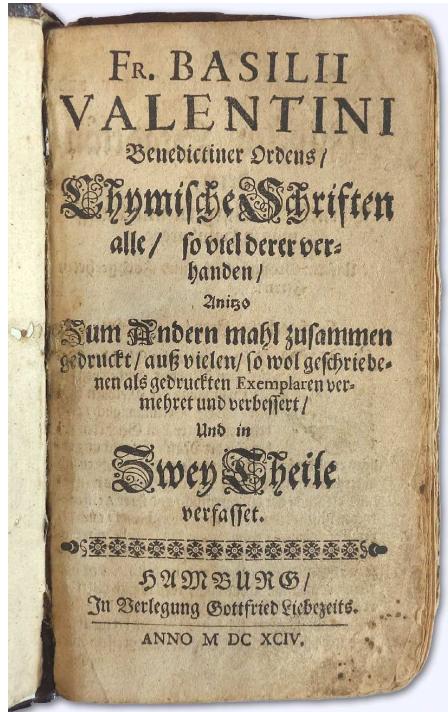 Fr. BASILII
VALENTINI
Benedictiner Ordens /
Chymische Schriften
alle / so viel derer ver-
handen /
Anitzo
Zum Andern mahl zusammen
gedruckt / auß vielen / so wol geschriebe-
nen als gedruckten Exemplaren ver-
mehret und verbessert /
Und in
Zwey Theile
verfasset.
HAMBURG /
In Verlegung Gottfried Liebezeits.
ANNO M DC XCIV.